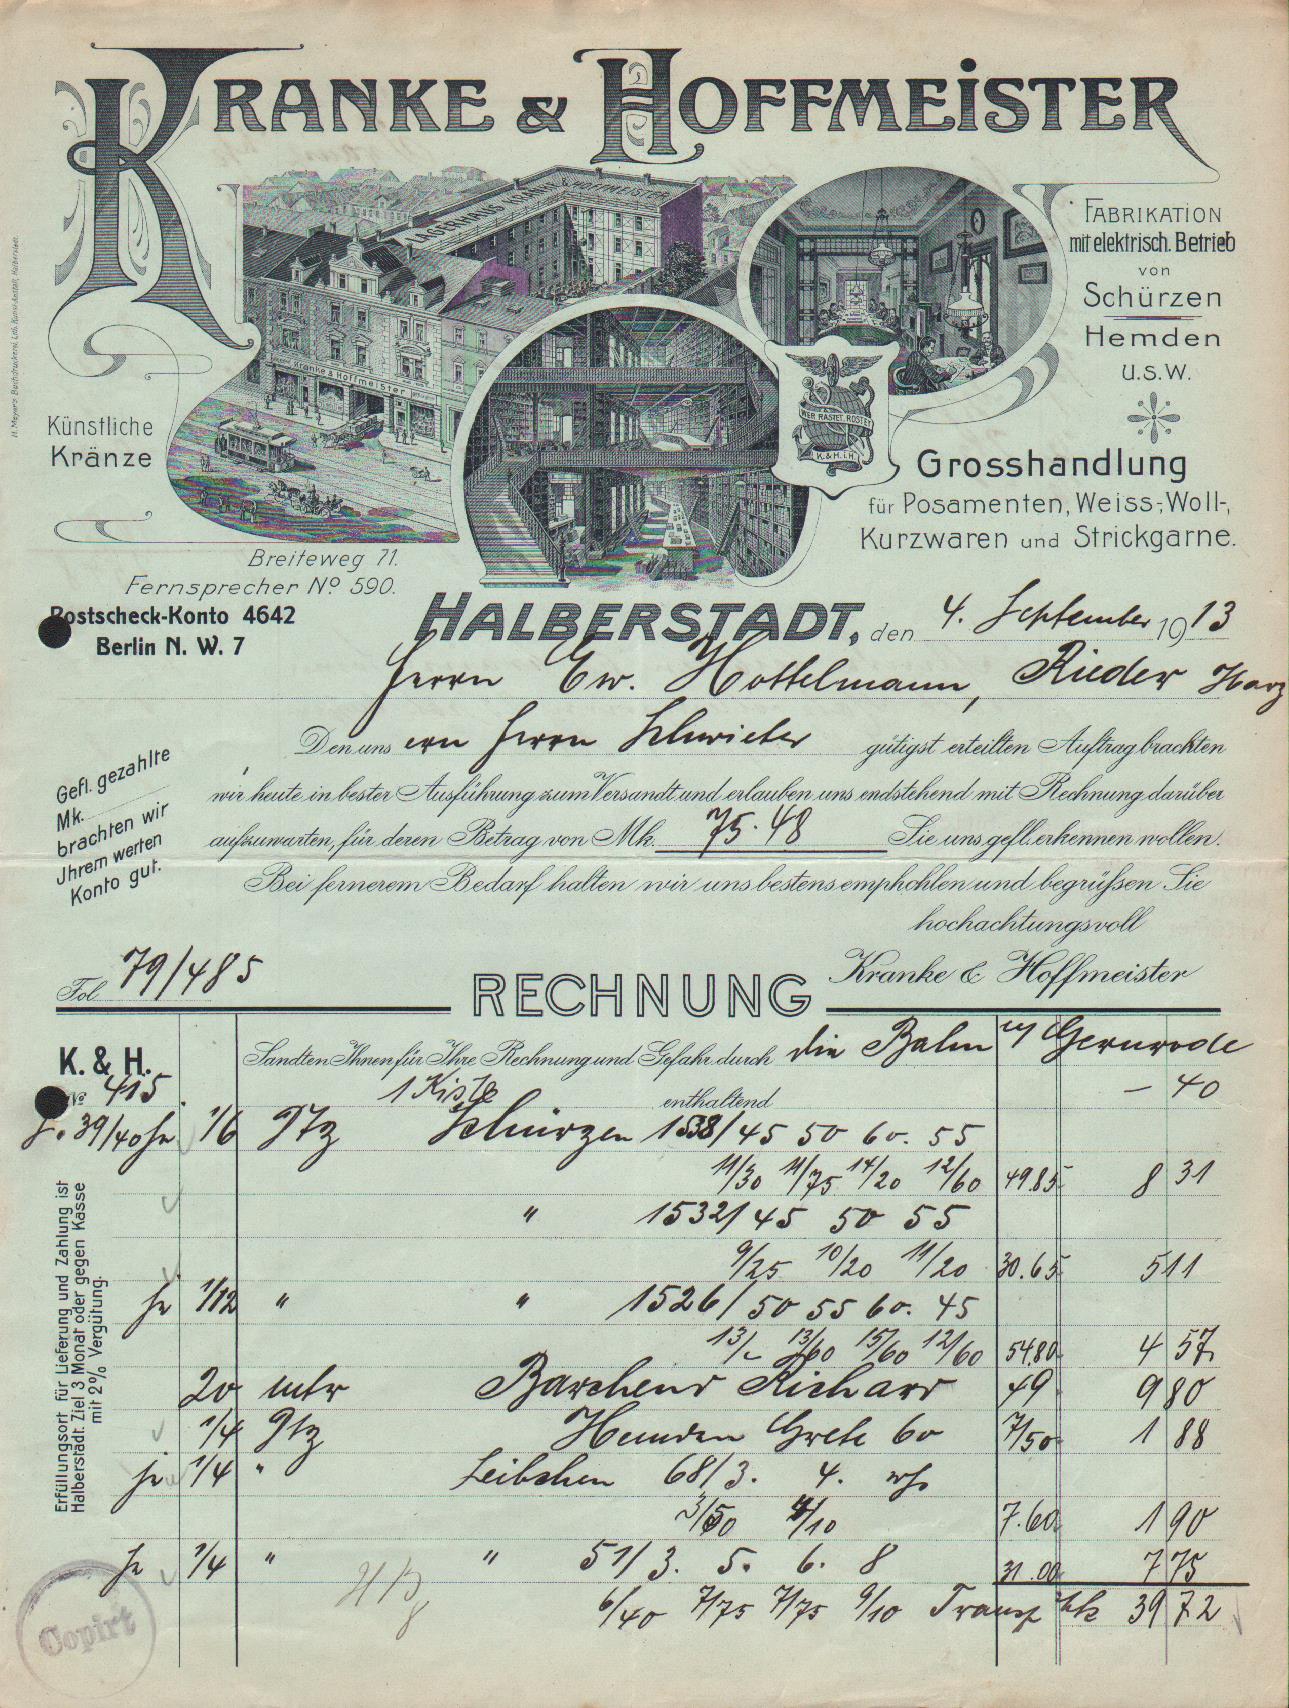 KRANKE & HOFFMEISTER
LAGERHAUS KRANKE & HOFFMEISTER
Kranke & Hoffmeister
WER RASTET, ROSTET
K. & H. i. H.
FABRIKATION
mit elektrisch. Betrieb
von
Schürzen
Hemden
u.s.w.
Künstliche
Kränze
Grosshandlung
für Posamenten, Weiss-, Woll-,
Kurzwaren und Strickgarne.
Breiteweg 71.
Fernsprecher No. 590.
Postscheck-Konto 4642
Berlin N. W. 7
HALBERSTADT, den 4. September 1913
Herrn Ew. Hottelmann, Rieder Harz
Den uns Herrn Schwieter gütigst erteilten Auftrag brachten
wir heute in bester Ausführung zum Versandt und erlauben uns endstehend mit Rechnung darüber
aufzuwarten, für deren Betrag von Mk. 75.48 Sie uns gefl. erkennen wollen.
Bei fernerem Bedarf halten wir uns bestens empfohlen und begrüßen Sie
hochachtungsvoll
Kranke & Hoffmeister
Gefl. gezahlte
Mk.
brachten wir
Jhrem werten
Konto gut.
Fol. 79/485
RECHNUNG
K. & H.
No 415
Sandten Ihnen für Ihre Rechnung und Gefahr durch die Bahn n/ Gernrode
1 Kiste enthaltend — 40
39/40 je 1/6 Dtz Schürzen 1538/45 50 60. 55
11/30 11/75 14/20 12/60 49.85 8 31
" 1532/45 50 55
9/25 10/20 11/20 30.65 5 11
je 1/12 " " 1526/50 55 60. 45
13/- 13/60 15/60 12/60 54.80 4 57
20 mtr Barchend Richard 49 9 80
1/4 Dtz Hemden Grete 60 7/50 1 88
je 1/4 " Leibchen 68/3. 4.
3/50 4/10 7.60 1 90
je 1/4 " " 51/3. 5. 6. 8 31.00 7 75
6/40 7/75 7/75 9/10 Transp Mk 39 72
Erfüllungsort für Lieferung und Zahlung ist
Halberstadt. Ziel 3 Monat oder gegen Kasse
mit 2% Vergütung.
Copirt
H. Meyer's Buchdruckerei, Lith. Kunst-Anstalt, Halberstadt.